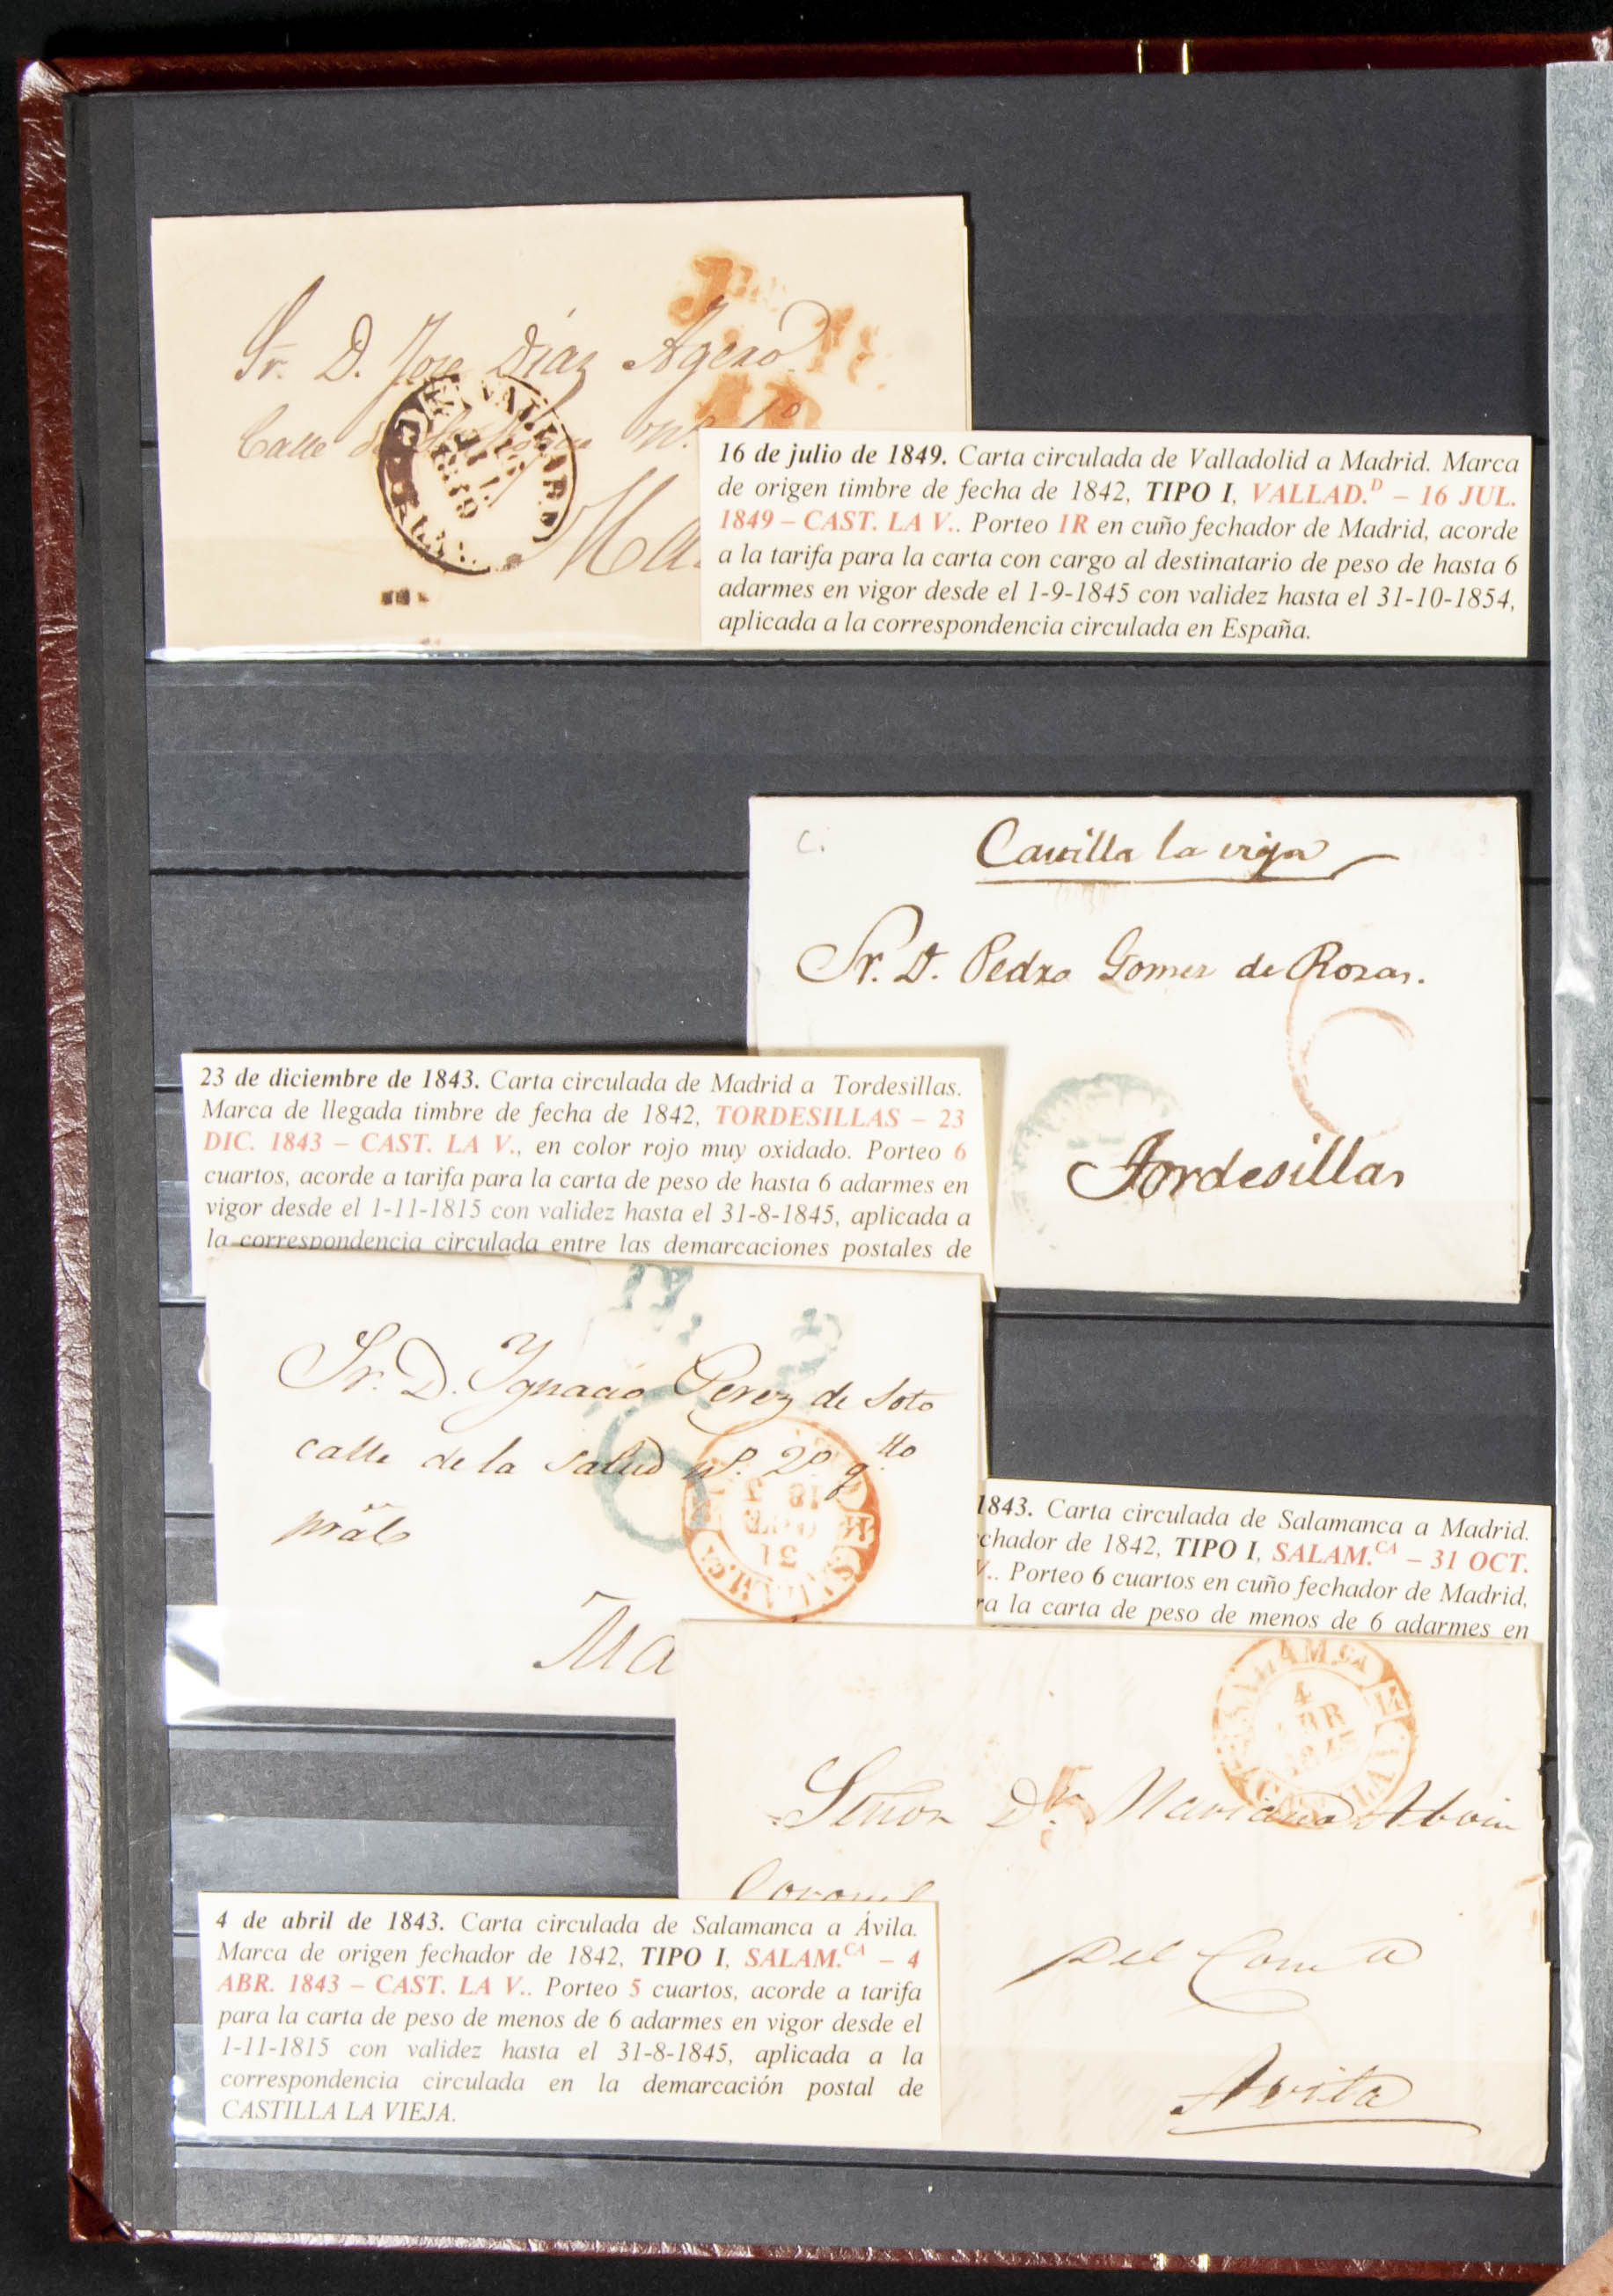 Sr. D. Jose Diaz Agero
Calle de
Ma
VALLAD.D
JUL
1849
16 de julio de 1849. Carta circulada de Valladolid a Madrid. Marca
de origen timbre de fecha de 1842, TIPO I, VALLAD.D – 16 JUL.
1849 – CAST. LA V.. Porteo 1R en cuño fechador de Madrid, acorde
a la tarifa para la carta con cargo al destinatario de peso de hasta 6
adarmes en vigor desde el 1-9-1845 con validez hasta el 31-10-1854,
aplicada a la correspondencia circulada en España.
C.
Castilla la vieja
Sr. D. Pedro Gomez de Rozas.
6
Tordesillas
23 de diciembre de 1843. Carta circulada de Madrid a Tordesillas.
Marca de llegada timbre de fecha de 1842, TORDESILLAS – 23
DIC. 1843 – CAST. LA V., en color rojo muy oxidado. Porteo 6
cuartos, acorde a tarifa para la carta de peso de hasta 6 adarmes en
vigor desde el 1-11-1815 con validez hasta el 31-8-1845, aplicada a
la correspondencia circulada entre las demarcaciones postales de
Sr. D. Ygnacio Perez de Soto
calle de la Salud nº. 2º. qto
pral
Ma
6
SALAM.CA
31
OCT
1843. Carta circulada de Salamanca a Madrid.
chador de 1842, TIPO I, SALAM.CA – 31 OCT.
V.. Porteo 6 cuartos en cuño fechador de Madrid,
ra la carta de peso de menos de 6 adarmes en
SALAM.CA
4
ABR
Señor Dn. Mariano
Coronel
Avila
5
4 de abril de 1843. Carta circulada de Salamanca a Ávila.
Marca de origen fechador de 1842, TIPO I, SALAM.CA – 4
ABR. 1843 – CAST. LA V.. Porteo 5 cuartos, acorde a tarifa
para la carta de peso de menos de 6 adarmes en vigor desde el
1-11-1815 con validez hasta el 31-8-1845, aplicada a la
correspondencia circulada en la demarcación postal de
CASTILLA LA VIEJA.